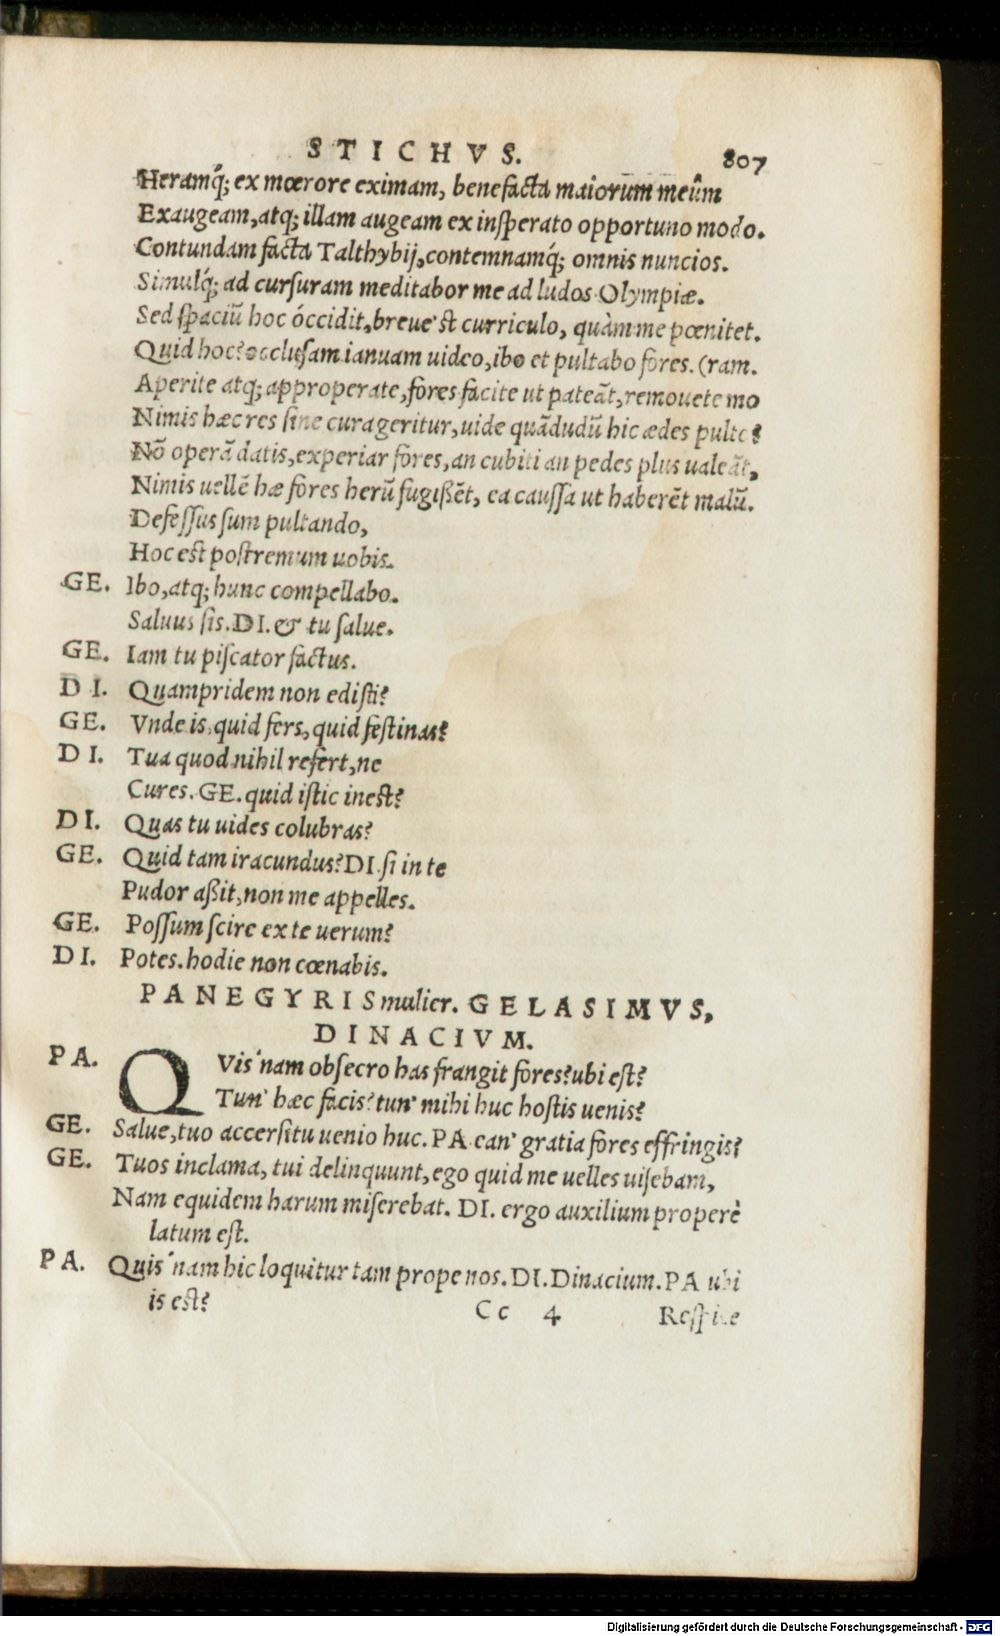 STICHVS. 807
Heramq́; ex mœrore eximam, benefacta maiorum meûm
Exaugeam, atq; illam augeam ex insperato opportuno modo.
Contundam facta Talthybij, contemnamq́; omnis nuncios.
Simulq́; ad cursuram meditabor me ad ludos Olympiæ.
Sed spaciũ hoc óccidit, breue'st curriculo, quàm me pœnitet.
Quid hoc? occlusam ianuam uideo, ibo et pultabo fores. (ram.
Aperite atq; approperate, fores facite ut pateãt, remouete mo
Nimis hæc res sine cura geritur, uide quãdudũ hic ædes pulte?
Nõ operã datis, experiar fores, an cubiti an pedes plus ualeãt,
Nimis uellẽ hæ fores herũ fugißẽt, ea caussa ut haberẽt malũ.
Defessus sum pultando,
Hoc est postremum uobis.
GE. Ibo, atq; hunc compellabo.
Saluus sis. DI. & tu salue.
GE. Iam tu piscator factus.
DI. Quampridem non edisti?
GE. Vnde is, quid fers, quid festinas?
DI. Tua quod nihil refert, ne
Cures. GE. quid istic inest?
DI. Quas tu uides colubras?
GE. Quid tam iracundus? DI. si in te
Pudor aßit, non me appelles.
GE. Possum scire ex te uerum?
DI. Potes. hodie non cœnabis.
PANEGYRIS mulier. GELASIMVS,
DINACIVM.
PA. QVis'nam obsecro has frangit fores? ubi est?
Tun' hæc facis? tun' mihi huc hostis uenis?
GE. Salue, tuo accersitu uenio huc. PA can' gratia fores effringis?
GE. Tuos inclama, tui delinquunt, ego quid me uelles uisebam,
Nam equidem harum miserebat. DI. ergo auxilium properè
latum est.
PA. Quis'nam hic loquitur tam prope nos. DI. Dinacium. PA ubi
is est? Cc 4 Respice
Digitalisierung gefördert durch die Deutsche Forschungsgemeinschaft - DFG